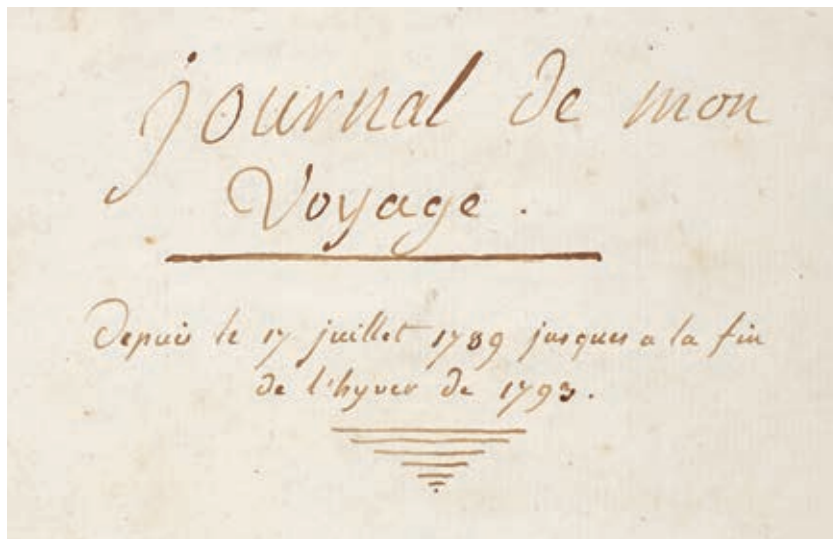 journal de mon
Voyage.
Depuis le 17 juillet 1789 jusques a la fin
de l'hyver de 1793.